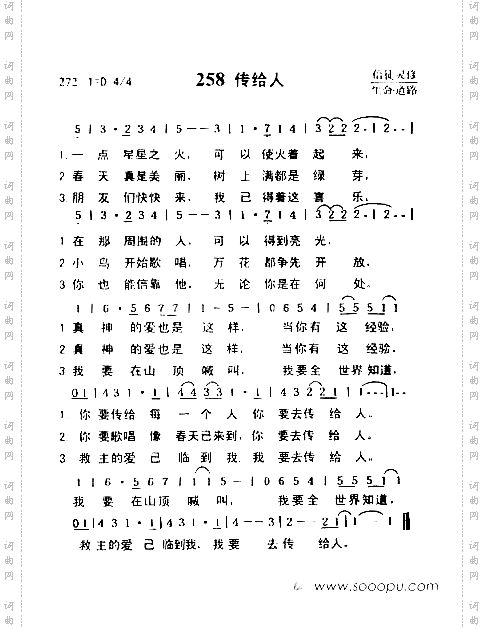 272 1=D 4/4
258 传给人
信徒灵修
生命·道路
5 | 3 · 2 3 4 | 5 — — 3 | 1 · 7 1 4 | 3 2 2 2 · | 2 — ·
1.一 点 星星之 火, 可 以 使火着 起 来,
2 春 天 真是美 丽, 树 上 满都是 绿 芽,
3.朋 友 们快快 来, 我 已 得着这 喜 乐,
5 | 3 · 2 3 4 | 5 — — 3 | 1 · 7 1 4 | 3 2 2 2 · | 2 — ·
1 在 那 周围的 人, 可 以 得到亮 光,
2 小 鸟 开始歌 唱, 万 花 都争先 开 放,
3 你 也 能信靠 他, 无 论 你是在 何 处。
1 | 6 · 5 6 7 7 | 1 — 5 — | 0 6 5 4 | 5 5 5 1 1
1 真 神 的爱也是 这 样, 当你有 这 经验,
2 真 神 的爱也是 这 样, 当你有 这 经验.
3 我 要 在山顶 喊 叫, 我要全 世界知道,
0 1 | 4 3 1 · 1 | 4 4 3 3 1 | · 1 | 4 3 2 2 | 1 — — ·
1 你 要传给 每 一 个 人 你 要去传 给 人。
2. 你 要歌唱 像 春天已来到, 你 要去传 给 人。
3 救 主的爱 已 临 到 我, 我 要去传 给 人。
1 | 6 · 5 6 7 | 1 5 — | 0 6 5 4 | 5 5 5 1 1
我 要 在山顶 喊 叫, 我要全 世界知道,
0 1 | 4 3 1 · 1 | 4 3 1 · 1 | 4 — — 3 | 2 — — 2 | 1 — — ·
救 主的爱 已 临到我, 我 要 去 传 给人.
www.sooopu.com
词曲网